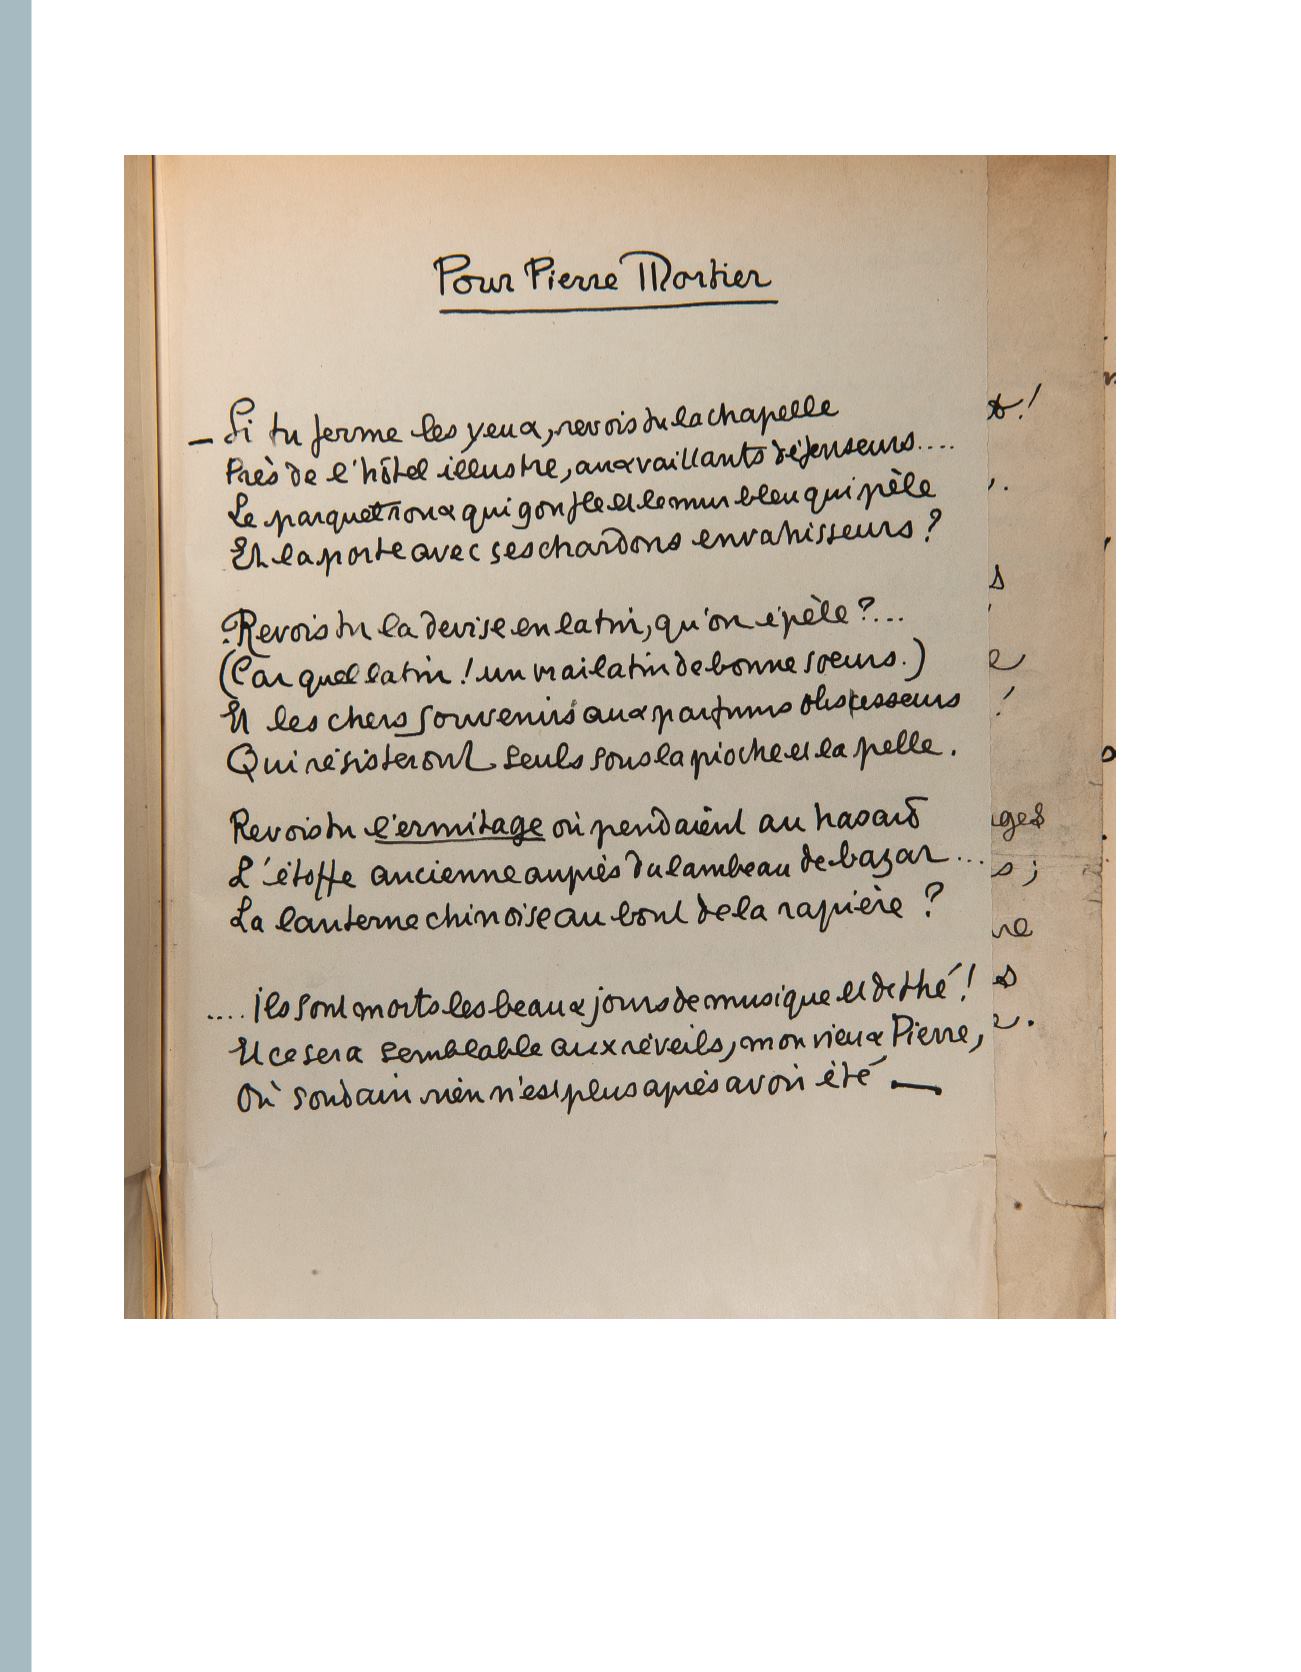 Pour Pierre Mortier
— Si tu ferme les yeux, revois tu la chapelle
Près de l'hôtel illustre, aux vaillants défenseurs....
Le parquet roux qui gonfle et le mur bleu qui pèle
Et la porte avec ses chardons envahisseurs ?
Revois tu la devise en latin, qu'on épèle ?...
(Car quel latin ! un vrai latin de bonne soeurs.)
Et les chers souvenirs aux parfums obscesseurs
Qui résisteront seuls sous la pioche et la pelle.
Revois tu l'ermitage où pendaient au hasard
L'étoffe ancienne auprès du lambeau de bazar...
La lanterne chinoise au bout de la rapière ?
.... ils sont morts les beaux jours de musique et de thé !
Et ce sera semblable aux réveils, mon vieux Pierre,
Où soudain rien n'est plus après avoir été —